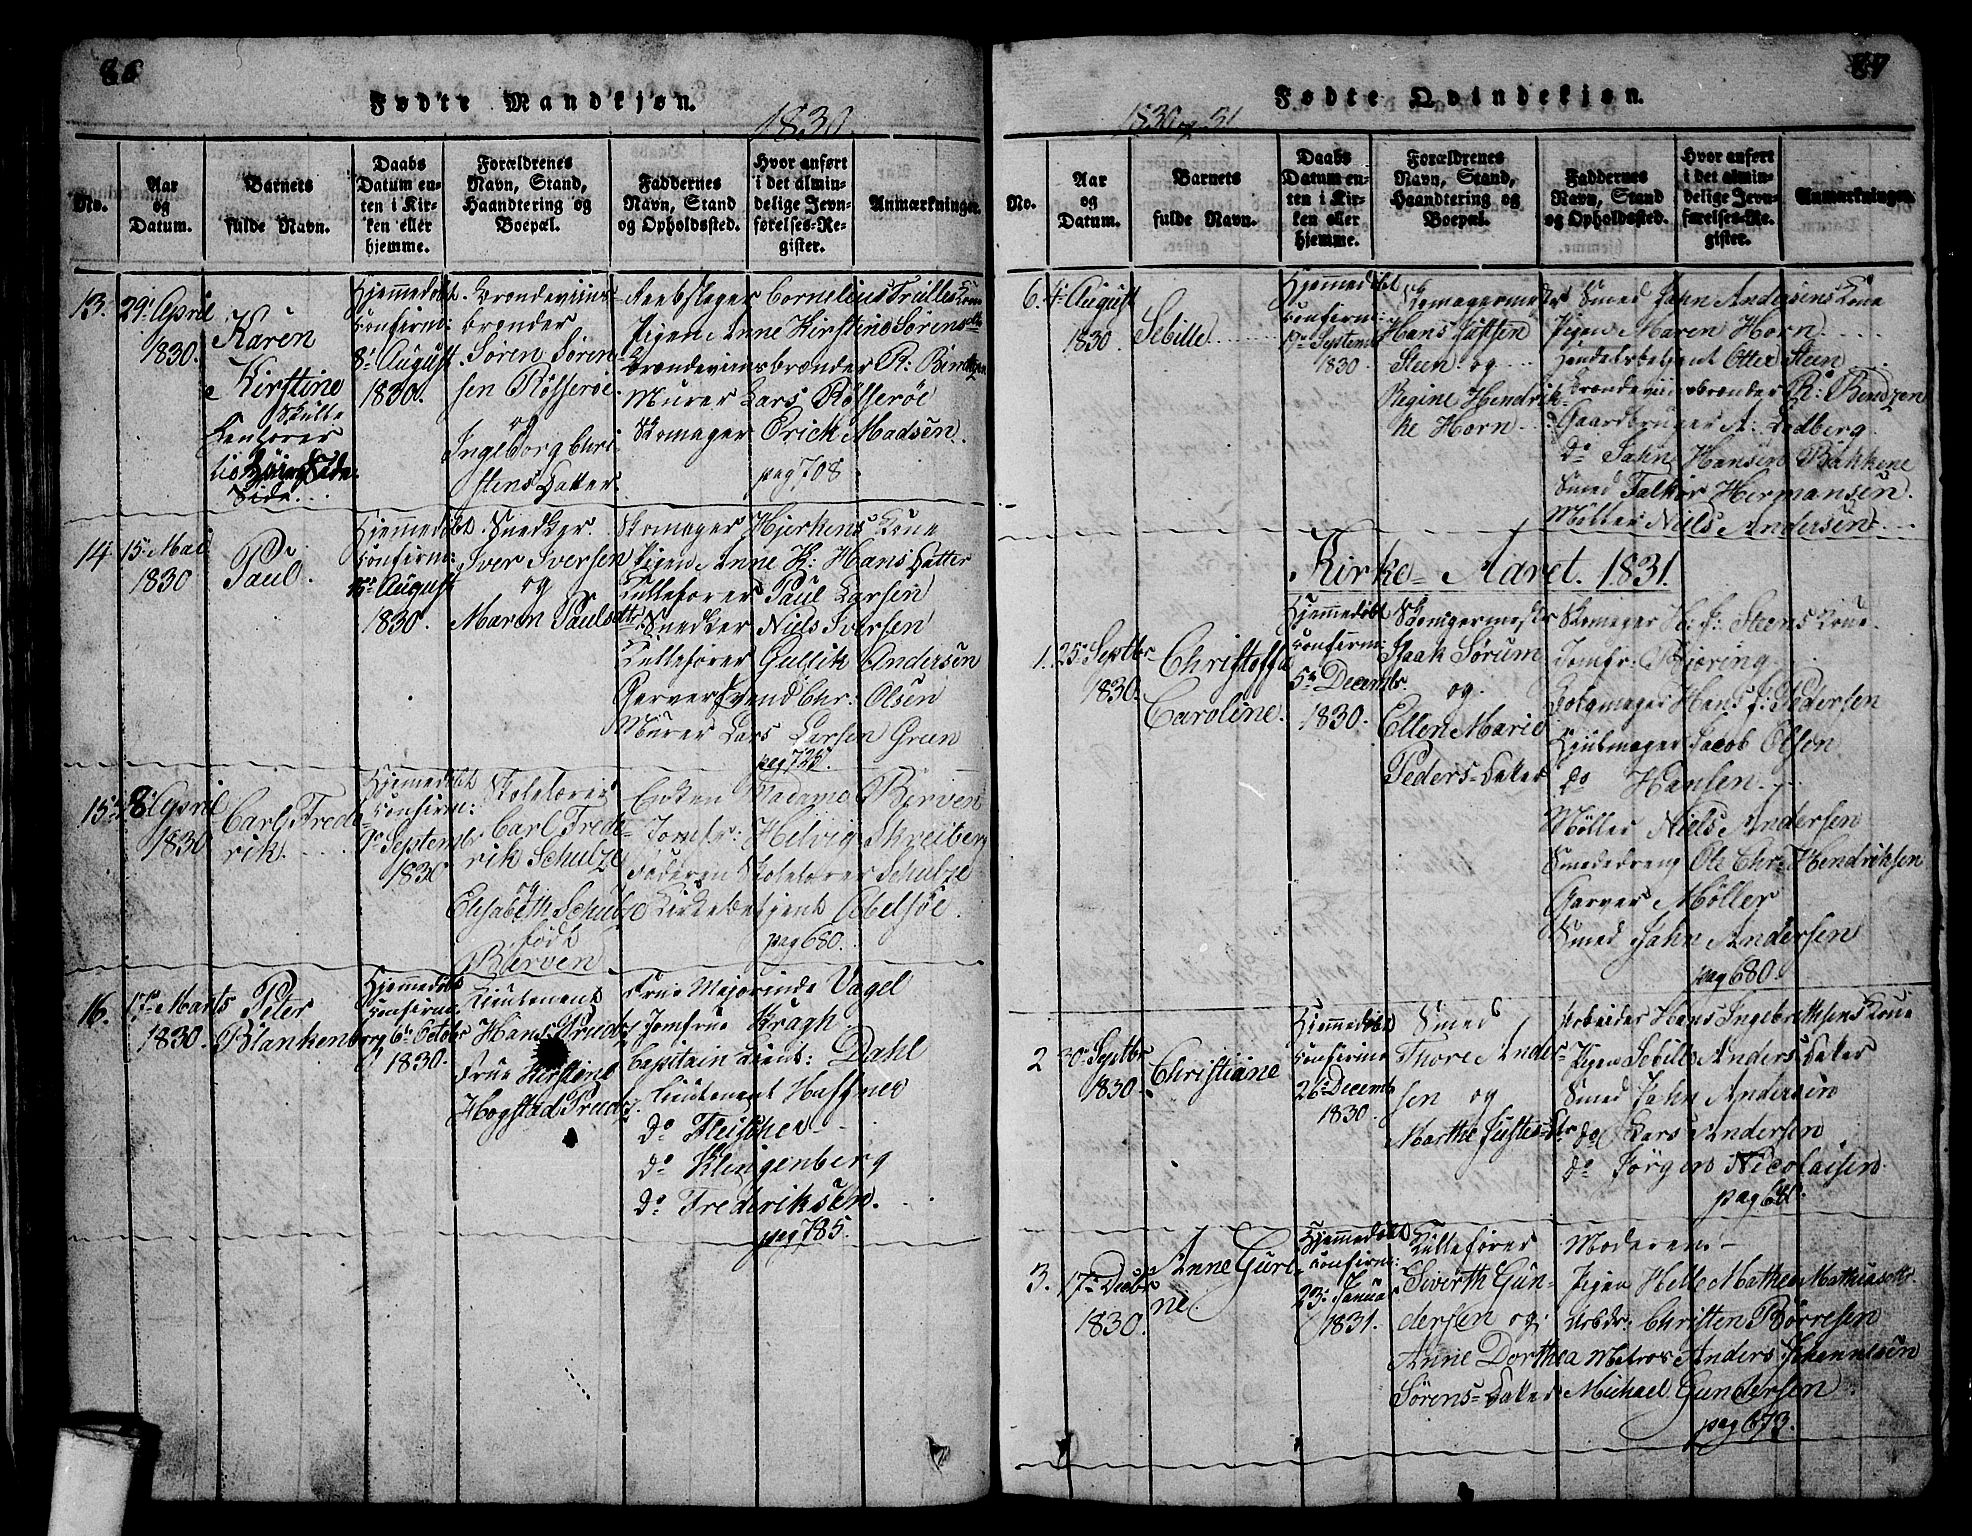 86
Fødte Mandkjøn.
1830
No.
Aar
og
Datum.
Barnets
fulde Navn.
Daabs
Datum en-
ten i Kir-
ken eller
hjemme.
Forældrenes
Navn, Stand,
Haandtering og
Boepæl.
Faddernes
Navn, Stand
og Opholdssted.
Hvor anført
i det almin-
delige Jevn-
førelses-Re-
gister.
Anmærkninger.
13.
29. April
1830.
Karen
Kirstine
Hjemmedøbt
confirm:
8. August
1830.
Brændeviins-
brænder
Søren Søren-
sen Røsserøe
og
Ingeborg Chri-
stens Datter
Reebslager Cornelius Trulles Kone
Pigen Anne Kirstine Sørens
Brændeviinsbrænder R: Bentzen
Murer Lars Røsserøe
Skomager Erick Madsen.
pag 708
14
15. Mai
1830
Paul.
Hjemmedøbt
confirm:
August
1830.
Snedker
Iver Iversen
og
Maren Paulsdtr
Skomager Hjerkens Kone
Pigen Anne K: Hans Datter
Lullefører Paul Larsen
Snedker Niels Iversen
Lullefører Gullik Andersen
Garver Svend Chr: Olsen
Murer Lars Larsen Green
pag 725.
15
8. April
1830
Carl Frede-
rik.
Hjemmedøbt
confirm:
9. Septemb
1830
Skolelærer
Carl Frede-
rik Schulze
og
Elisabeth Schulze
født
Bierven
Enken Madame Bierven
Jomfr: Helvig Schreiber
Faderen Skolelærer Schulze
Kirkebetjent Abelsøe.
pag 680.
16.
17. Marts
1830.
Peter
Blankenborg
Hjemmedøbt
confirm.
6. Octobr
1830.
Lieutenant
Hans
Frue Kirstine
Hogstad
Frue Majorinde Vagel
Jomfrue Kragh.
Capitain Lieut: Dahl
Lieutenant Haffner
Do Fleischer
Do Klingenberg
Do Frederiksen.
pag 785.
87
Fødte Qvindekjøn.
1830 og 31
No.
Aar
og
Datum.
Barnets
fulde Navn.
Daabs
Datum en-
ten i Kir-
ken eller
hjemme.
Forældrenes
Navn, Stand,
Haandtering og
Boepæl.
Faddernes
Navn, Stand
og Opholdssted.
Hvor anført
i det almin-
delige Jevn-
førelses-Re-
gister.
Anmærkninger.
6.
4. August
1830
Sebille
Hjemmedøbt
confirm:
19. Septemb
1830
Skomagermester
Hans Justsen
Steen og
Regine Hendrik-
ke Horn
Smed Jahn Andersens Kone
Pigen Maren Horn
Handelsbetjent Otter Steen
Brændeviinsbrænder R: Bendzen
Gaardbruger A: Lodberg
Do Jahn Hansen Bakkene
Smed Falkor Hermansen.
Møller Niels Andersen
Kirke-Aaret. 1831.
1.
25. Septbr
1830.
Christoffa
Caroline.
Hjemmedøbt
confirm:
5. Decembr.
1830.
Skomagermester
Isaak Sørum
og
Ellen Marie
Peders-Datter
Skomager H: J: Steens Kone.
Jomfr: Bjering
Skomager Hans J: Pedersen
Hjulmager Jacob Olsen
Do Hansen
Møller Niels Andersen
Smededreng Ole Chr: Hendriksen
Garver Møller
Smed Jahn Andersen
pag 680.
2
30. Septbr
1830.
Christiane
Hjemmedøbt
confirm
26. Decemb
1830.
Smed
Thore Ander-
sen og
Marthe Justesdtr
Arbeider Hans Ingebrethsens Kone
Pigen Sebille Anders Datter
Smed Jahn Andersen
do Lars Andersen
Do Jørgen Nicolaisen.
pag 681.
3.
17. Decbr
1830.
Anne Guri-
ne.
Hjemmedøbt
confirm:
23. Januar
1831.
Lullefører
Siverth Gun-
dersen og
Anne Dorthea
Sørens-Datter
Moderen
Pigen Helle Mathea Mathiasdtr.
Arbdr: Christen Børresen
Matros Anders Johannesen
Michael Gundersen
pag 673.